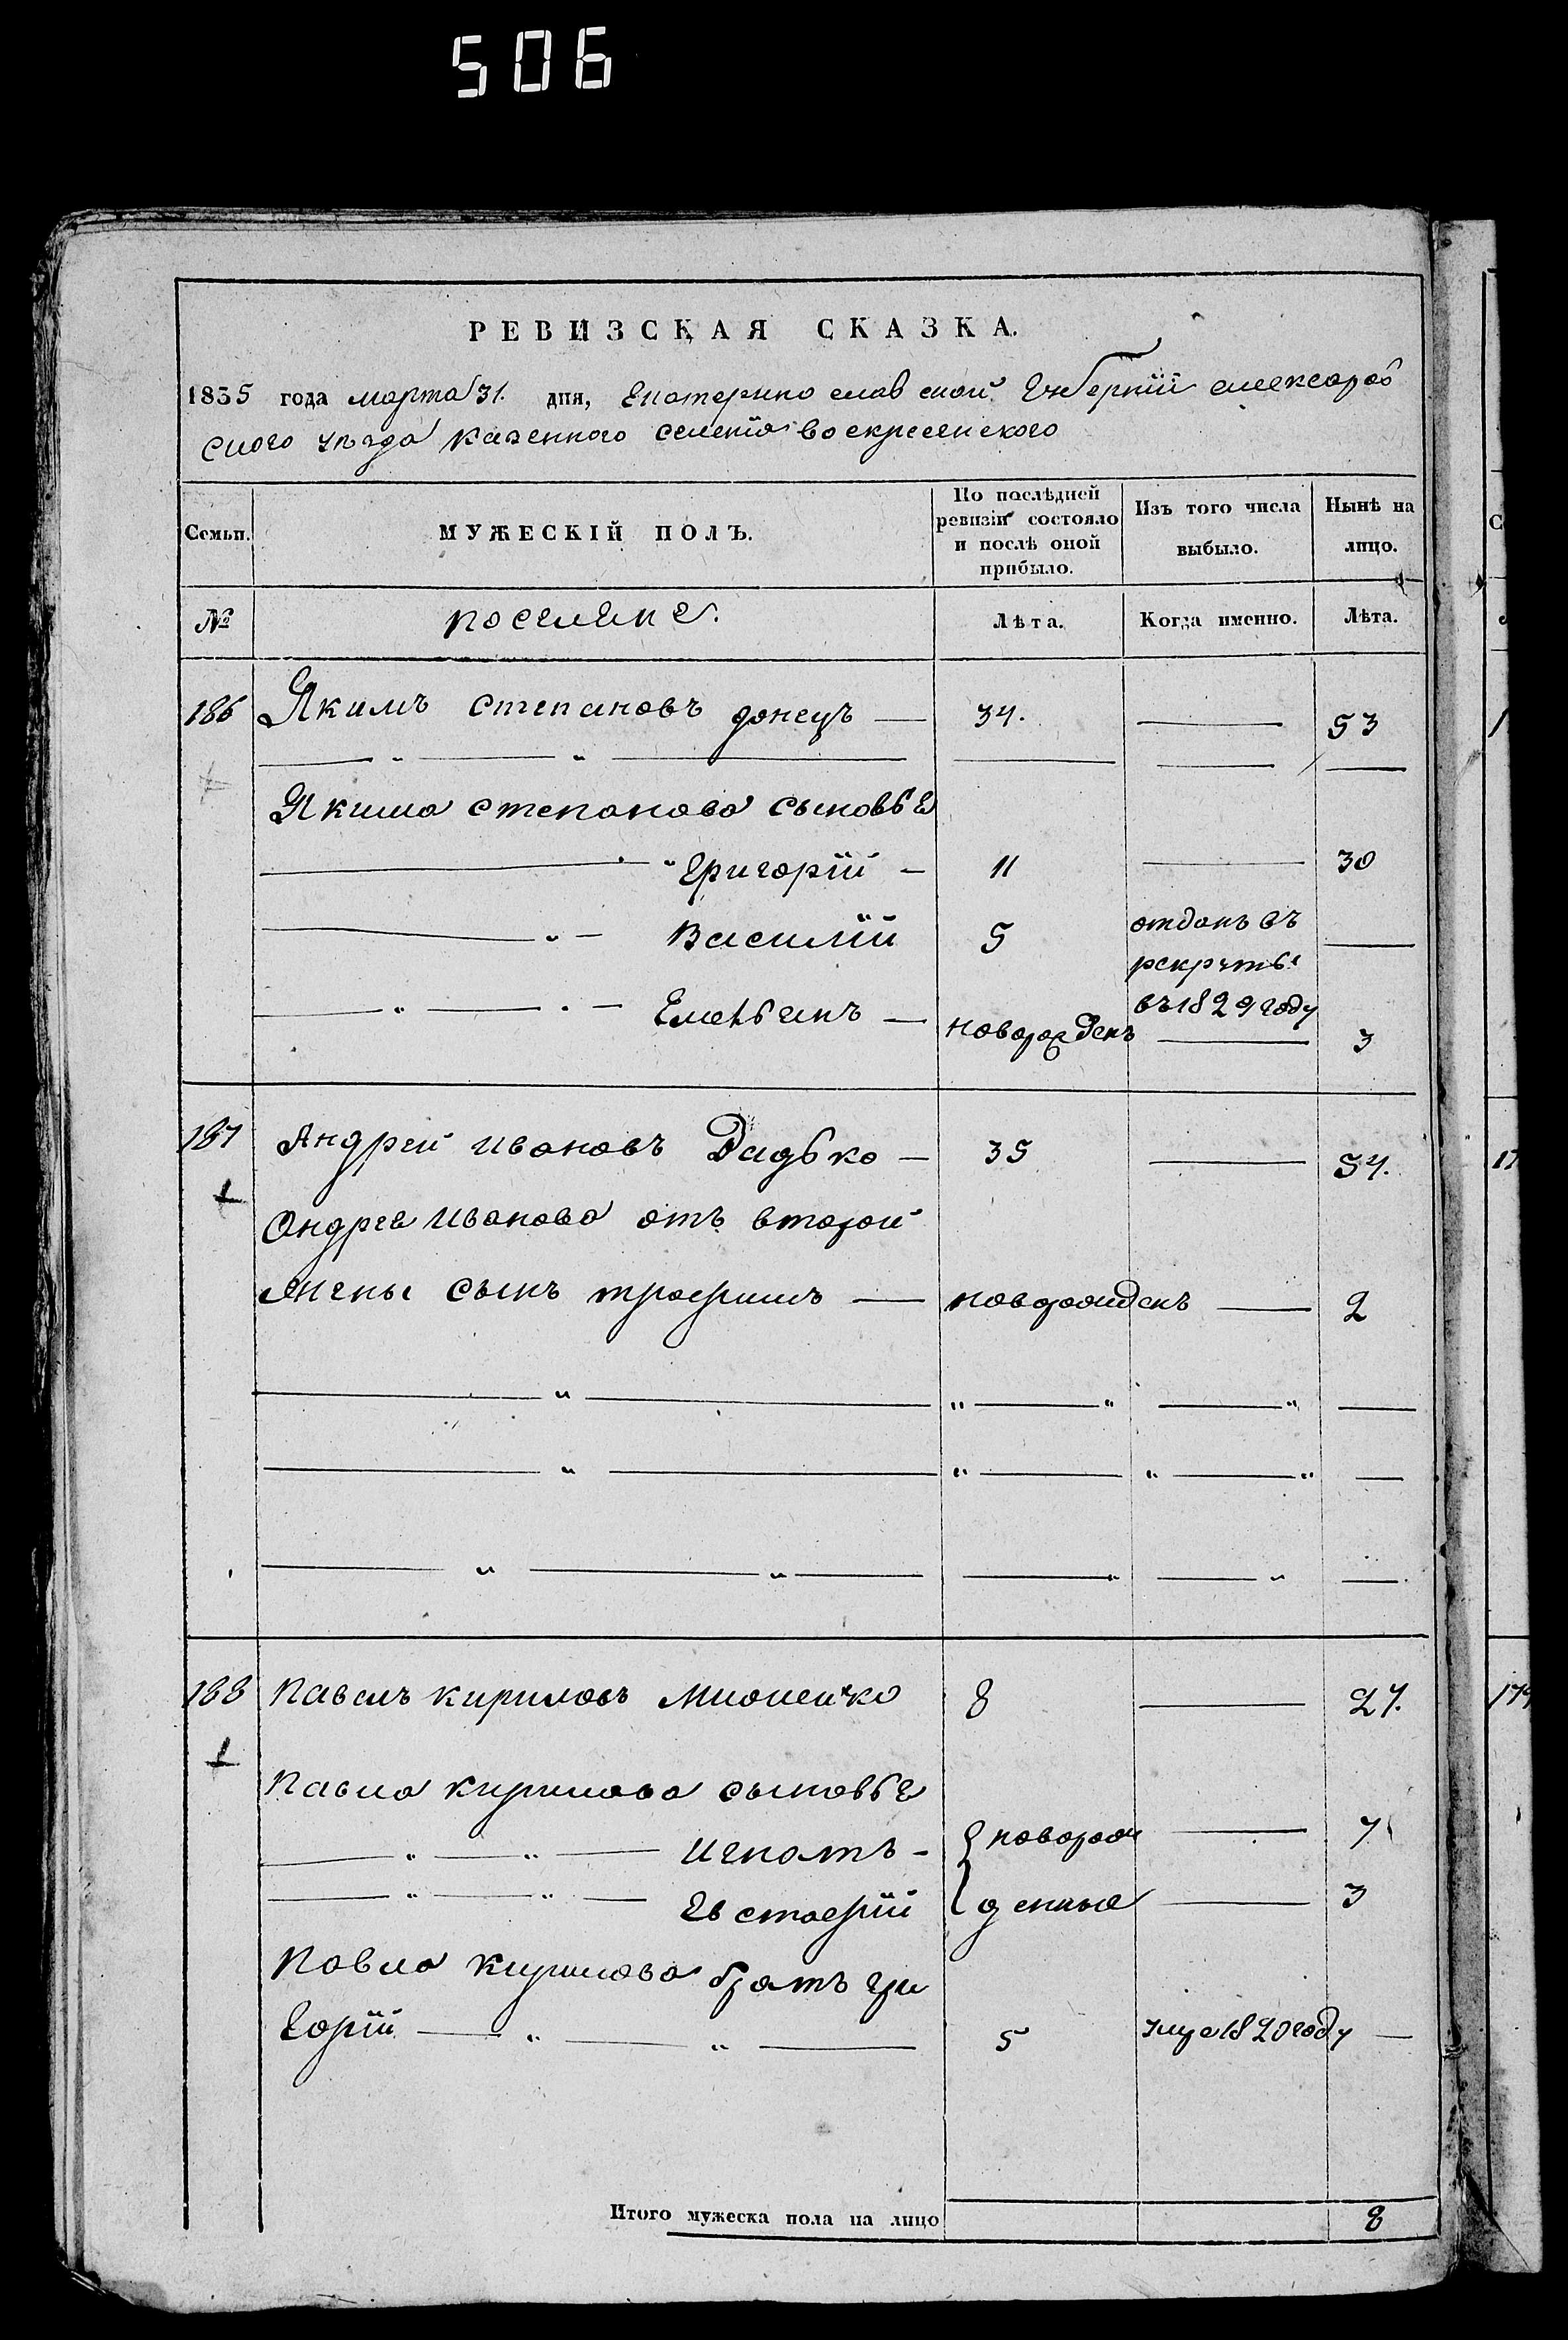 506
РЕВИЗСКАЯ СКАЗКА.
1835 года марта 31. дня, Екатерино славской Губернїи александров
скаго уезда казенного селенїя воскресенского
Семьи. МУЖЕСКІЙ ПОЛЪ. По послѣдней ревизіи состояло и послѣ оной прибыло. Изъ того числа выбыло. Нынѣ на лицо.
№ поселяне. Лѣта. Когда именно. Лѣта.
186 Якимъ степановъ донецъ — 34. — 53
Якима степанова сыновье
Григорїй — 11 — 30
Василїй 5 отданъ въ рекруты въ 1829 году —
Емельянъ — новорожденъ — 3
187 Андрей ивановъ Дадько — 35 — 54.
Андрея иванова отъ второй
жены сынъ трофимъ — новорожденъ — 2
188 павелъ кириловъ
8 — 27.
павла кирилова сыновье
игнатъ — новорож — 7
Евстафїй денные — 3
павла кирилова братъ гри
горїй — 5 умре 1820 году —
Итого мужеска пола на лицо 8